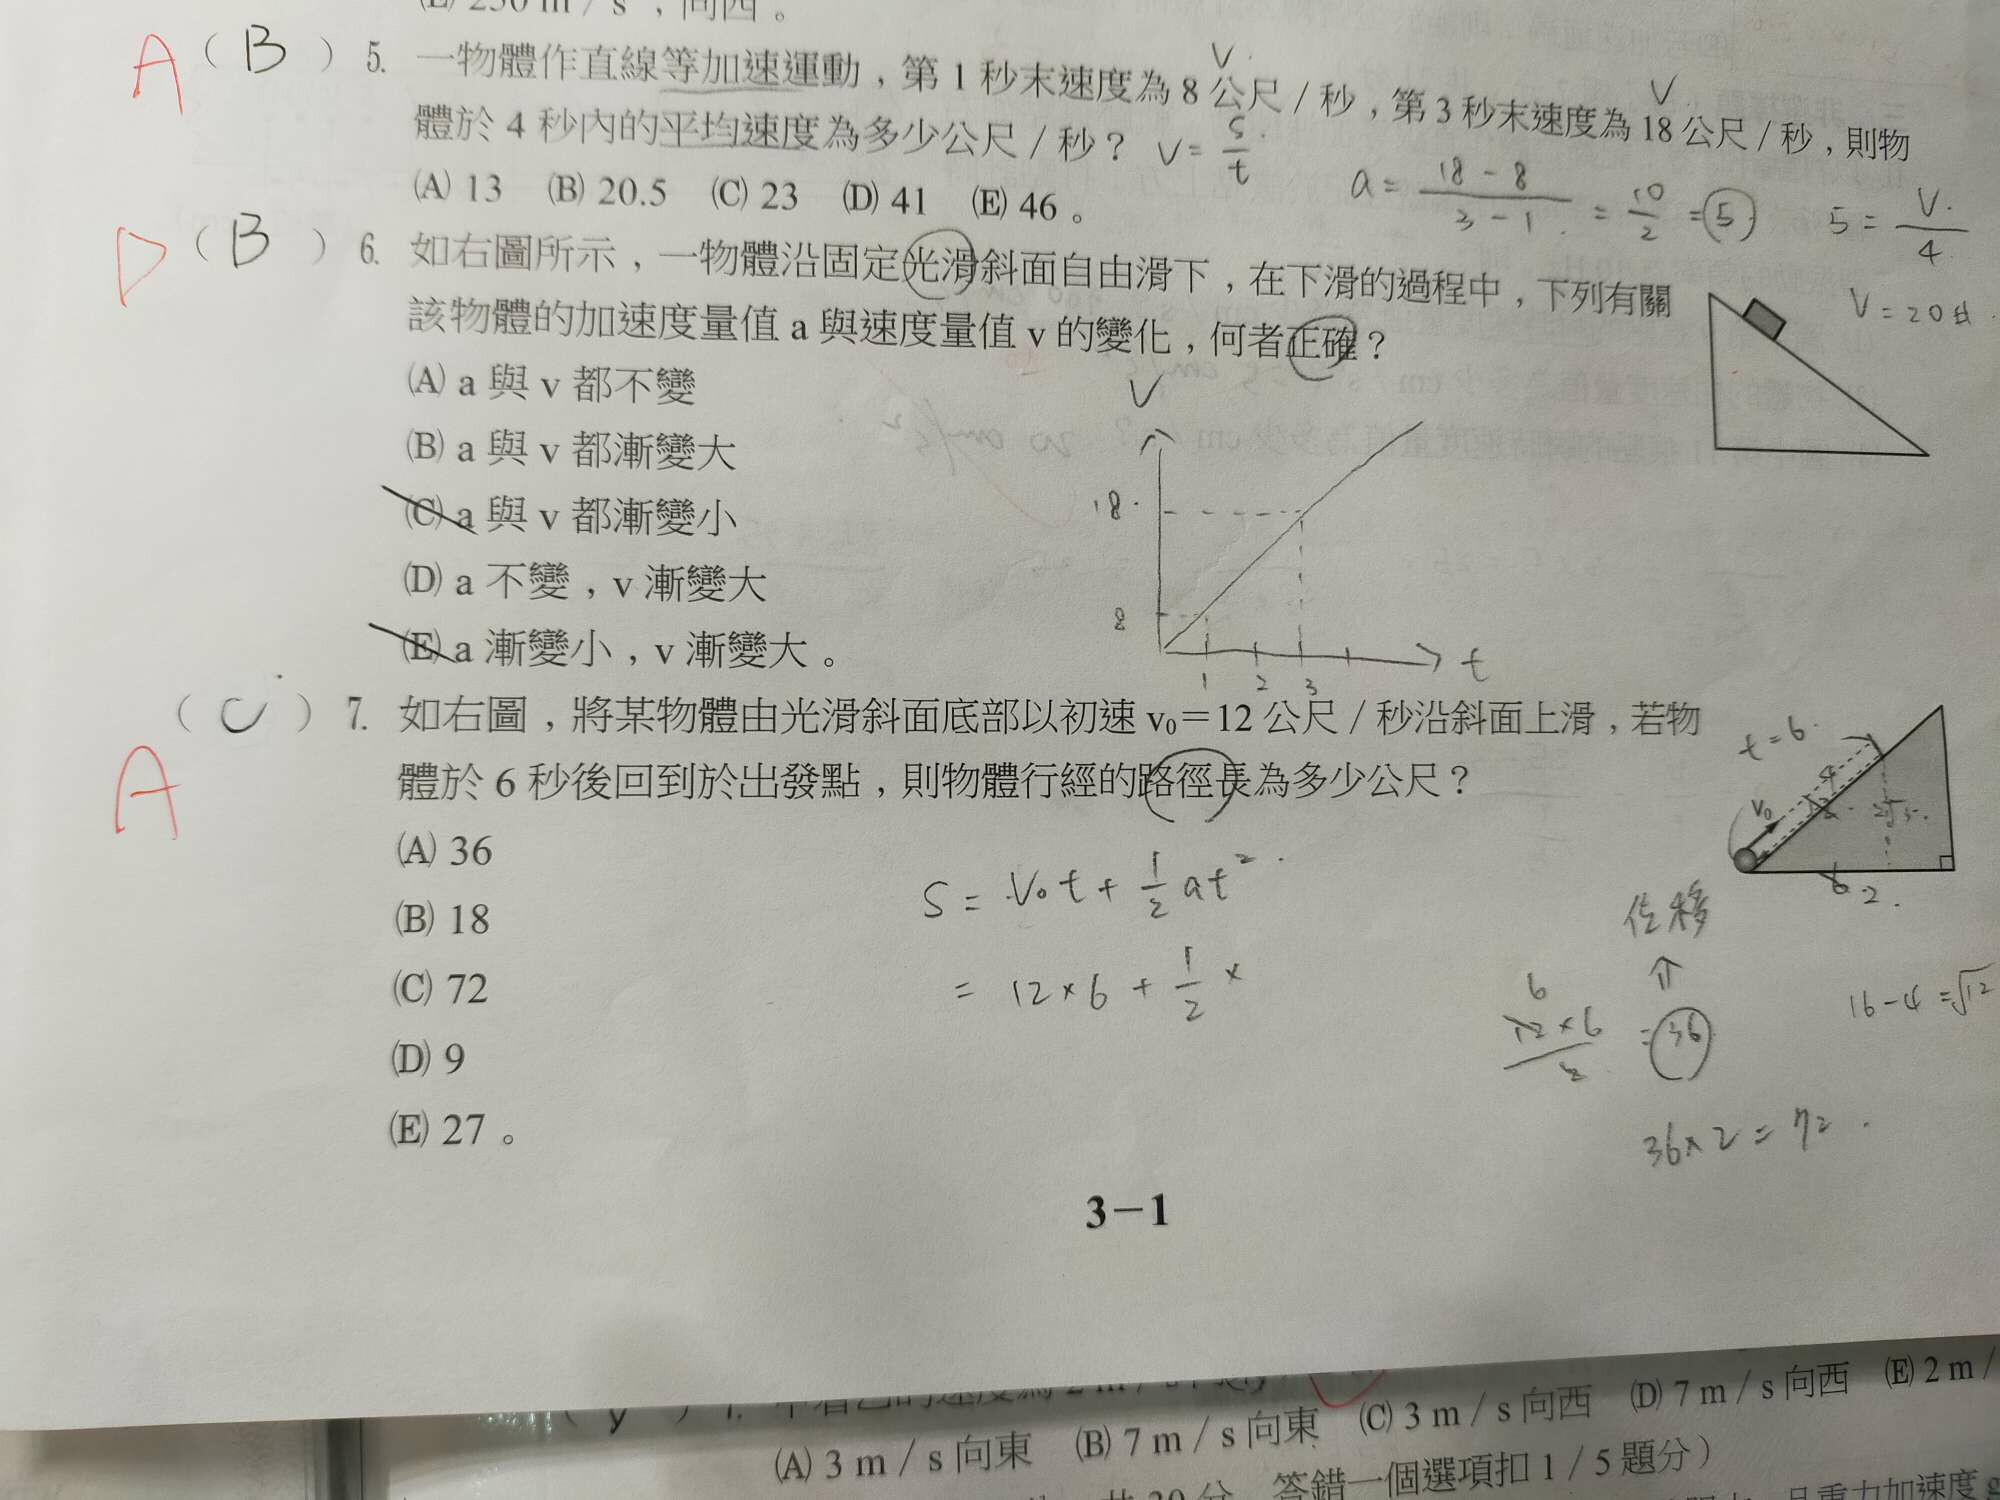 (E) 250 m / s , 向西。
A ( B ) 5. 一物體作直線等加速運動,第 1 秒末速度為 8 公尺/秒,第 3 秒末速度為 18 公尺/秒,則物
V
V
體於 4 秒內的平均速度為多少公尺/秒? V = s/t
(A) 13 (B) 20.5 (C) 23 (D) 41 (E) 46。
a = (18 - 8)/(3 - 1) = 10/2 = 5
5 = V/4
V = 20
D ( B ) 6. 如右圖所示,一物體沿固定光滑斜面自由滑下,在下滑的過程中,下列有關
該物體的加速度量值 a 與速度量值 v 的變化,何者正確?
(A) a 與 v 都不變
(B) a 與 v 都漸變大
(C) a 與 v 都漸變小
(D) a 不變,v 漸變大
(E) a 漸變小,v 漸變大。
V
18
8
1 2 3 t
A ( C ) 7. 如右圖,將某物體由光滑斜面底部以初速 v₀=12 公尺/秒沿斜面上滑,若物
體於 6 秒後回到於出發點,則物體行經的路徑長為多少公尺?
(A) 36
(B) 18
(C) 72
(D) 9
(E) 27。
t = 6
4
v₀
2
S = V₀t + 1/2 at²
= 12 × 6 + 1/2 ×
位移
⇑
6
12 × 6 / 2 = 36
16 - 4 = √12
36 × 2 = 72
3－1
(A) 3 m / s 向東 (B) 7 m / s 向東 (C) 3 m / s 向西 (D) 7 m / s 向西 (E) 2 m /
答錯一個選項扣 1 / 5 題分)
重力加速度 g